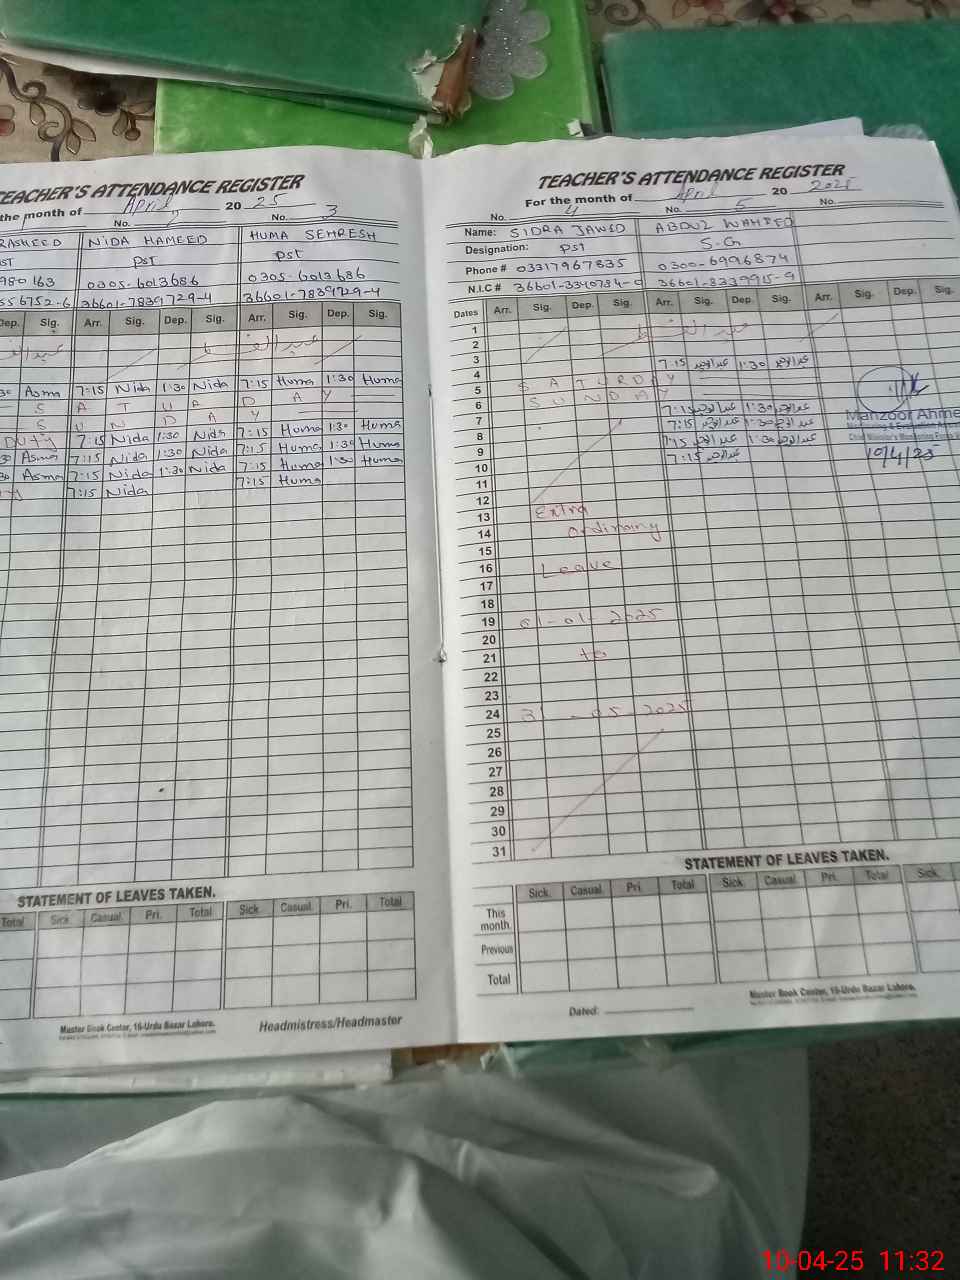 TEACHER'S ATTENDANCE REGISTER
the month of April 2025
No. No. 3
RASHEED NIDA HAMEED HUMA SEHRESH
PST PST
980163 0305-6013686 0305-6013686
556752-6 36601-7839729-4 36601-7839729-4
Dep. Sig. Arr. Sig. Dep. Sig. Arr. Sig. Dep. Sig.
عید الفطر
30 Asma 7:15 Nida 1:30 Nida 7:15 Huma 1:30 Huma
S A T U R D A Y
S U N D A Y
Duty 7:15 Nida 1:30 Nida 7:15 Huma 1:30 Huma
30 Asma 7:15 Nida 1:30 Nida 7:15 Huma 1:30 Huma
30 Asma 7:15 Nida 1:30 Nida 7:15 Huma 1:30 Huma
7:15 Nida 7:15 Huma
STATEMENT OF LEAVES TAKEN.
Total Sick Casual Pri. Total Sick Casual Pri. Total
Master Book Center, 16-Urdu Bazar Lahore.
Headmistress/Headmaster
TEACHER'S ATTENDANCE REGISTER
For the month of April 2025
No. 4 No. 5 No.
Name: SIDRA JAWED ABDUL WAHEED
Designation: PST S-G
Phone # 03317967835 0300-6996874
N.I.C #
Dates Arr. Sig. Dep. Sig. Arr. Sig. Dep. Sig. Arr. Sig. Dep. Sig.
1 عید الفطر
2
3
4 7:15 1:30
5 SATURDAY
6 SUNDAY
7 7:15 1:30
8 7:15 1:30
9 7:15 1:30
10 7:15
11
12
13 Extra
14 ordinary
15
16 Leave
17
18
19 01-01-2025
20
21 to
22
23
24 31-05-2025
25
26
27
28
29
30
31
Manzoor Ahme
Monitoring & Evaluation
Chief Minister's Monitoring Force
10/4/25
STATEMENT OF LEAVES TAKEN.
Sick. Casual. Pri. Total Sick. Casual. Pri. Total Sick.
This month.
Previous
Total
Dated:
Master Book Center, 16-Urdu Bazar Lahore.
10-04-25 11:32